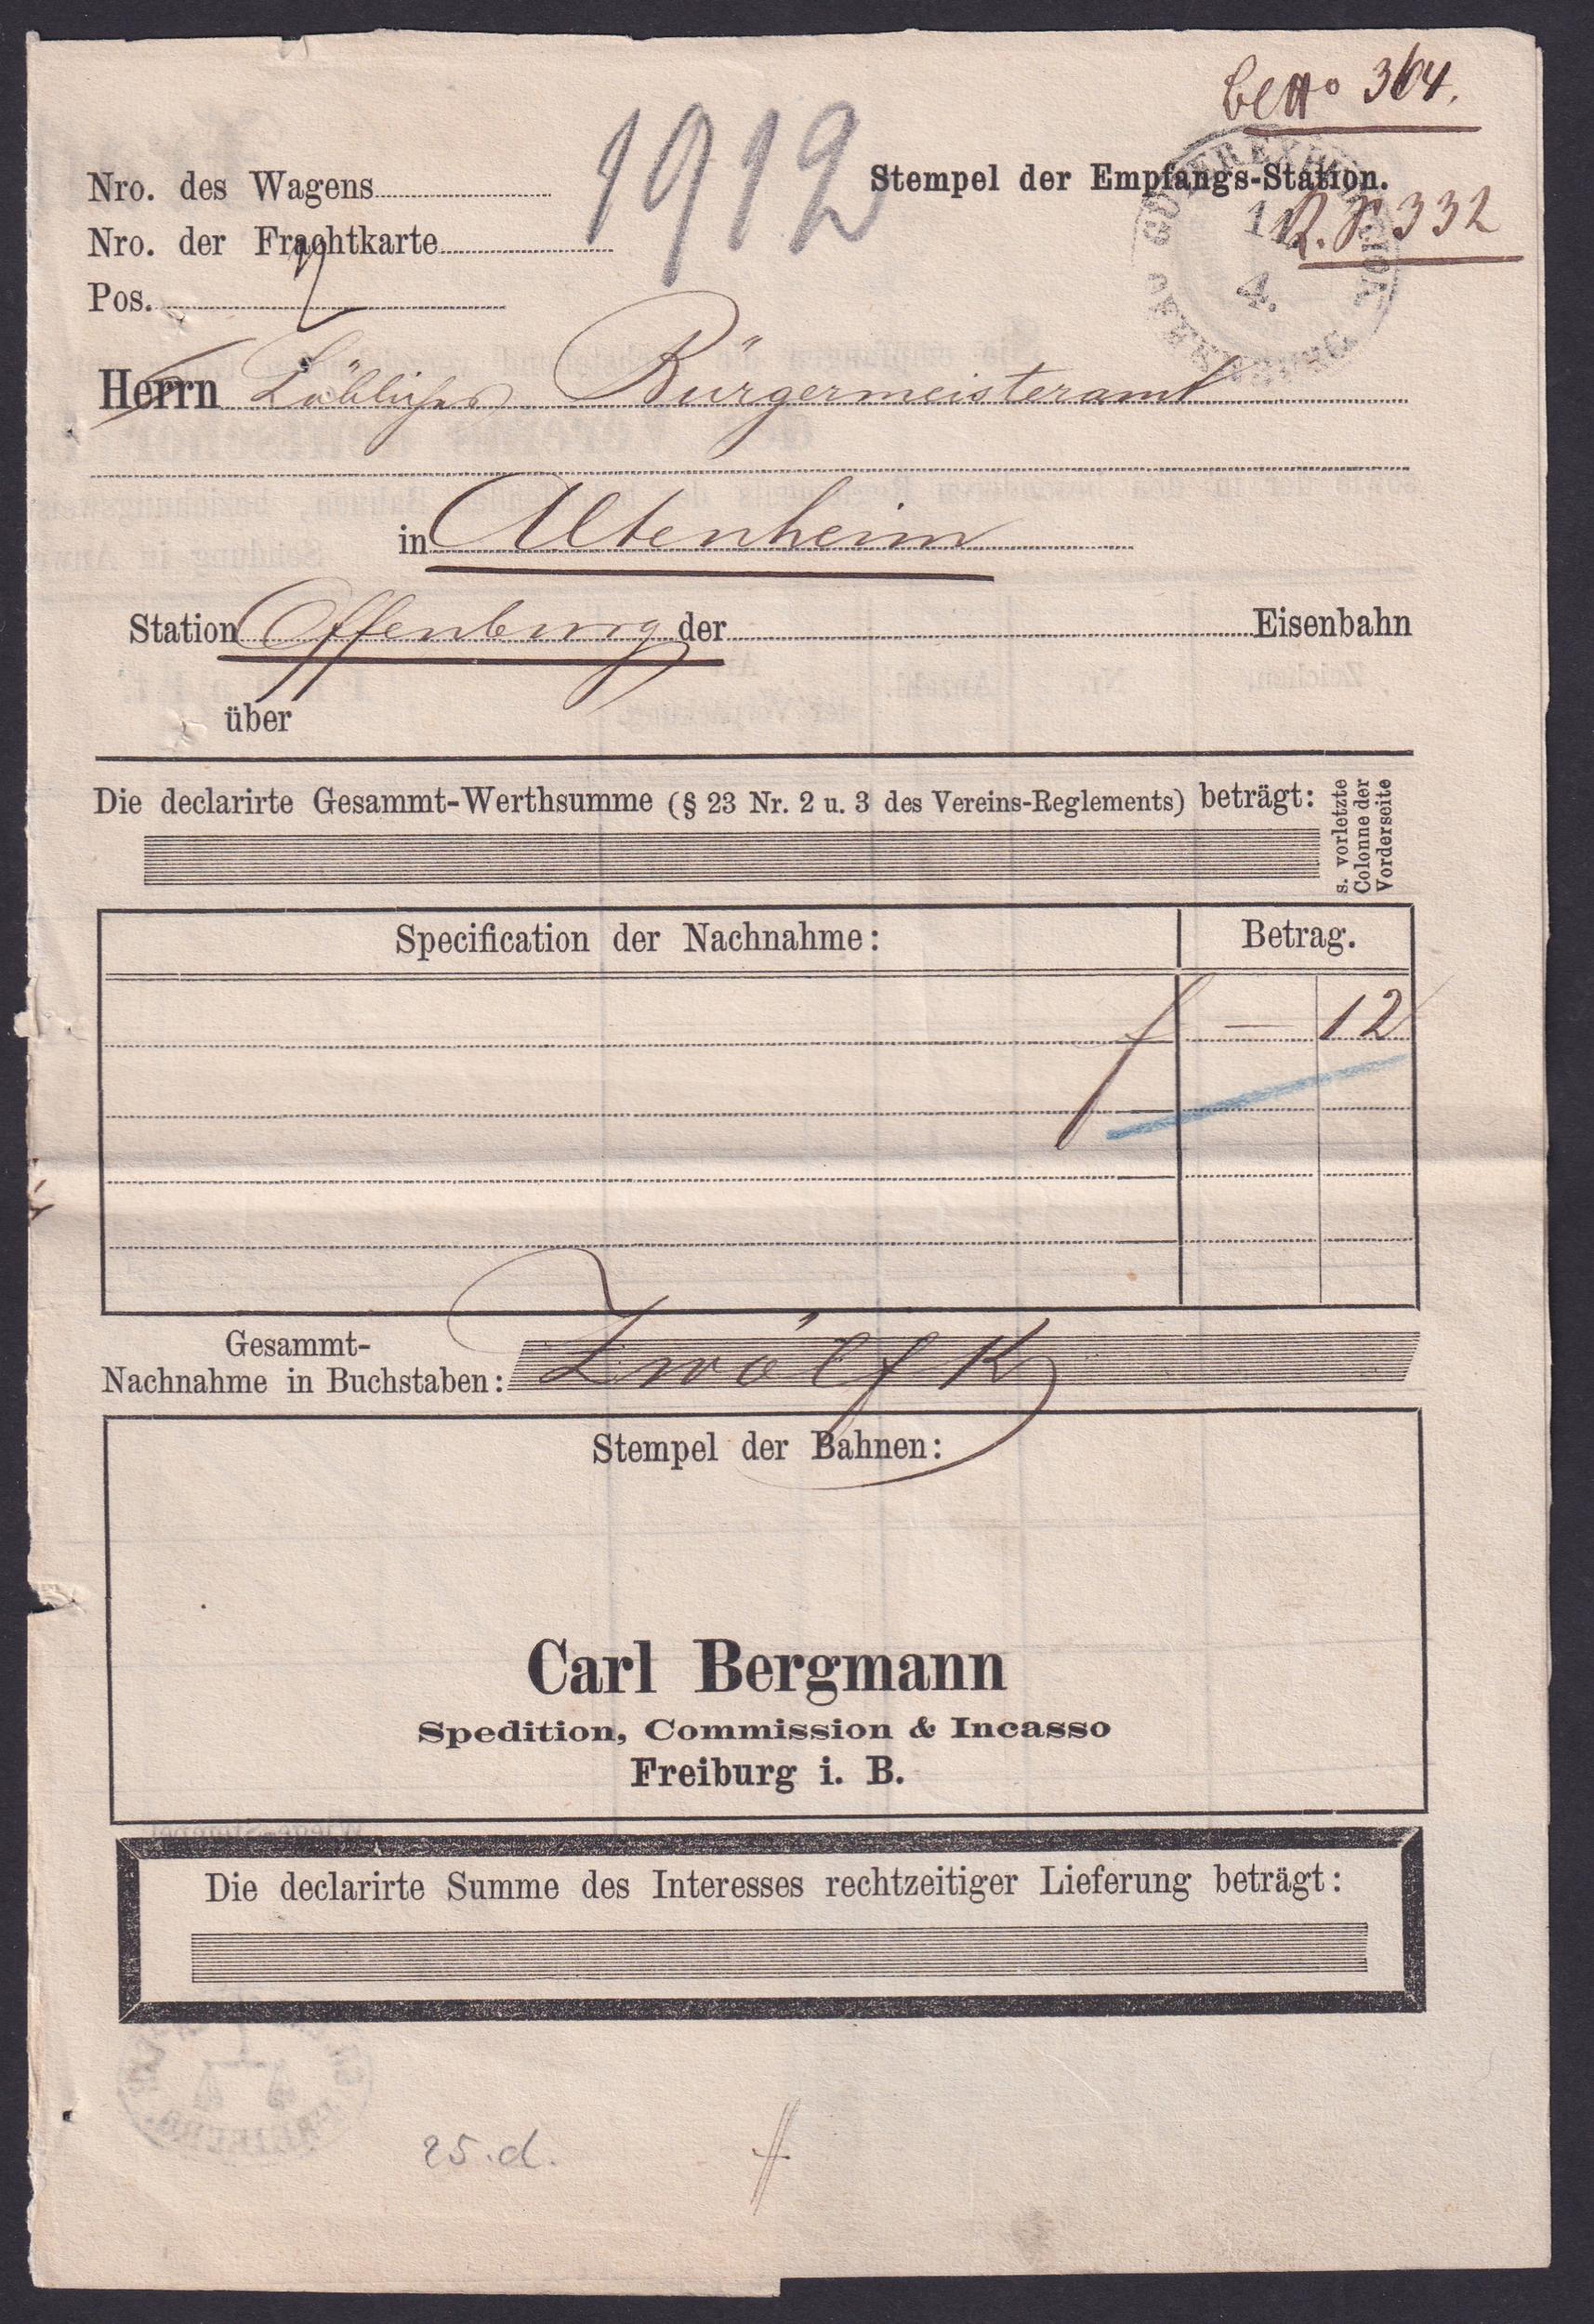 Betto 364.
Nro. des Wagens
1912
Stempel der Empfangs-Station.
GÜTEREXPEDITION
OFFENBURG
11
4.
332
Nro. der Frachtkarte
Pos.
Herrn Löbliches Bürgermeisteramt
in Altenheim
Station Offenburg der Eisenbahn
über
Die declarirte Gesammt-Werthsumme (§ 23 Nr. 2 u. 3 des Vereins-Reglements) beträgt:
s. vorletzte
Colonne der
Vorderseite
Specification der Nachnahme:
Betrag.
f — 12
Gesammt-
Nachnahme in Buchstaben: Zwölf K
Stempel der Bahnen:
Carl Bergmann
Spedition, Commission & Incasso
Freiburg i. B.
Die declarirte Summe des Interesses rechtzeitiger Lieferung beträgt:
25.d.